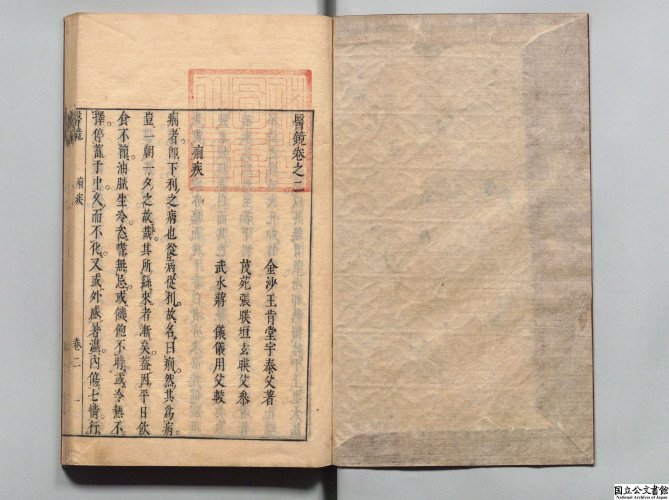 醫鏡卷之二
金沙王肯堂宇泰父著
茂苑張暎垣玄暎父叅
武水蔣儀儀用父較
痢疾
痢者卽下利之病也從病從利故名曰痢然其為病
豈一朝一夕之故哉其所繇來者漸矣蓋因平日飲
食不節油膩生冷恣嗜無忌或饑飽不時或冷熱不
擇停蓄于中久而不化又或外感暑濕內傷七情行
醫鏡
痢疾
卷二
一
国立公文書館
National Archives of Japan